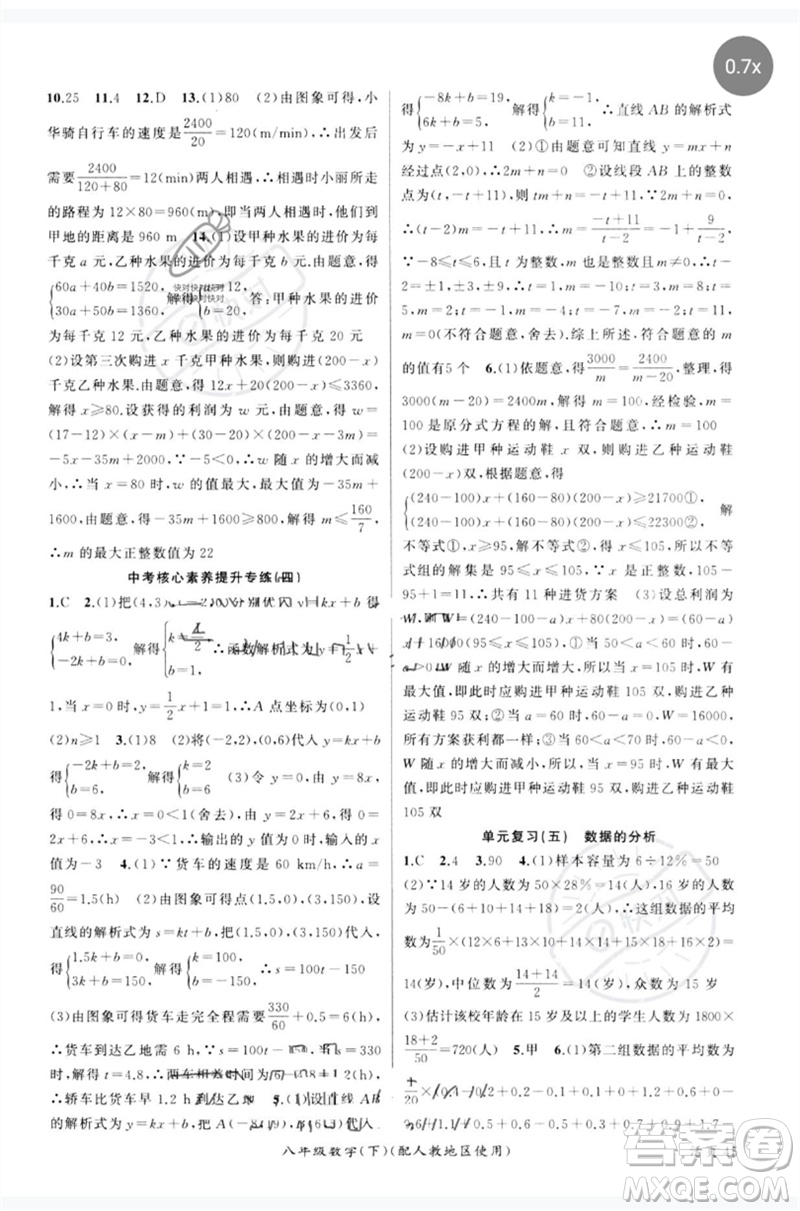 0.7x
10.25 11.4 12.D 13.(1)80 (2)由图象可得,小
华骑自行车的速度是2400/20=120(m/min)∴出发后
需要2400/(120+80)=12(min)两人相遇,∴相遇时小丽所走
的路程为12×80=960(m),即当两人相遇时,他们到
甲地的距离是960 m 14.(1)设甲种水果的进价为每
千克a元,乙种水果的进价为每千克b元.根据题意,得
{60a+40b=1520, 30a+50b=1360, 解得{ =12, b=20. 答:甲种水果的进价
为每千克12元,乙种水果的进价为每千克20元
(2)设第三次购进x千克甲种水果,则购进(200-x)
千克乙种水果.由题意,得12x+20(200-x)≤3360,
解得x≥80.设获得的利润为w元,由题意,得w=
(17-12)×(x-m)+(30-20)×(200-x-3m)=
-5x-35m+2000,∵-5<0,∴w随x的增大而减
小,∴当x=80时,w的值最大,最大值为-35m+
1600,由题意,得-35m+1600≥800,解得m≤160/7,
∴m的最大正整数值为22
中考核心素养提升专练(四)
1.C 2.(1)把(4,3), kx+b,得
{4k+b=3, -2k+b=0, 解得{ b=1, ∴函数解析式为y=1/2x+
1,当x=0时,y=1/2x+1=1,∴A点坐标为(0,1)
(2)n≥1 3.(1)8 (2)将(-2,2),(0,6)代入y=kx+b,
得{-2k+b=2 b=6 解得{k=2 b=6 (3)令y=0,由y=8x,
得0=8x,∴x=0<1(舍去),由y=2x+6,得0=2x+
6,∴x=-3<1,∴输出的y值为0时,输入的x值
为-3 4.(1)80 (2)∵货车的速度是60 km/h,∴a=
90/60=1.5(h),由图象可得点(1.5,0),(3,150),设
直线的解析式为s=kt+b,把(1.5,0),(3,150)代入,
得{1.5k+b=0, 3k+b=150, 解得{ b=-150, ∴s=100t-150
(3)由图象可得货车走完全程需要330/60+0.5=6(h),
∴货车到达乙地需6 h,∵s=100t-150,s=330,解得
t=4.8,∴两车相差时间为6-4.8=1.2(h),
∴轿车比货车早1.2 h到达乙地 5.(1)设直线AB的
解析式为y=kx+b,把点A(-8,19),B(6,5)代入,
得{-8k+b=19, 6k+b=5, 解得{k=-1, b=11, ∴直线AB的解析式
为y=-x+11 (2)①由题意可知直线y=mx+n
经过点(2,0),∴2m+n=0 ②设线段AB上的整数
点为(t,-t+11),则tm+n=-t+11,∵2m+n=0,
∴(t-2)m=-t+11,∴m=(-t+11)/(t-2)=-1+9/(t-2),∵
-8≤t≤6,且t为整数,m也是整数,∴t-2=±1,±3
或-9,∴t=1,m=-10;t=3,m=8;t=5,m=2;t=-1,m=-4;t=-7,m=-2;
m=0(不符合题意,舍去).综上所述,符合题意的m
的值有5个 6.(1)依题意,得3000/m=2400/(m-20),整理,得
3000(m-20)=2400m,解得m=100,经检验,m=
100是原分式方程的解,且符合题意,∴m=100
(2)设购进甲种运动鞋x双,则购进乙种运动鞋
(200-x)双,根据题意,得
{(240-100)x+(160-80)(200-x)≥21700①, (240-100)x+(160-80)(200-x)≤22300②, 解
不等式①,得x≥95,解不等式②,得x≤105,∴不等
式组的解集是95≤x≤105,∵x是正整数,105-
95+1=11,∴共有11种进货方案 (3)设总利润为
W,则W=(240-100-a)x+80(200-x)=(60-a)
x+16000(95≤x≤105),①当50<a<60时,60-
a>0,W随x的增大而增大,∴当x=105时,W有
最大值,即此时应购进甲种运动鞋105双,购进乙种
运动鞋95双;②当a=60时,60-a=0,W=16000,
所有方案获利都一样;③当60<a<70时,60-a<0,
W随x的增大而减小,∴当x=95时,W有最大
值,即此时应购进甲种运动鞋95双,购进乙种运动鞋
105双
单元复习(五) 数据的分析
1.C 2.4 3.90 4.(1)样本容量为6÷12%=50
(2)∵14岁的人数为50×28%=14(人),16岁的人数
为50-(6+10+14+18)=2(人),∴这组数据的平均
数为1/50×(12×6+13×10+14×14+15×18+16×2)=
14(岁),中位数为(14+14)/2=14(岁),众数为15岁
(3)估计该校年龄在15岁及以上的学生人数为1800×
(18+2)/50=720(人) 5.甲 6.(1)第二组数据的平均数为
八年级数学(下)(配人教地区使用)
快对快对快对
MXQE.COM